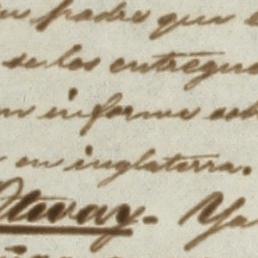 su padre que e
se los entregue
un informe sob
en inglaterra.
Otway - Ya